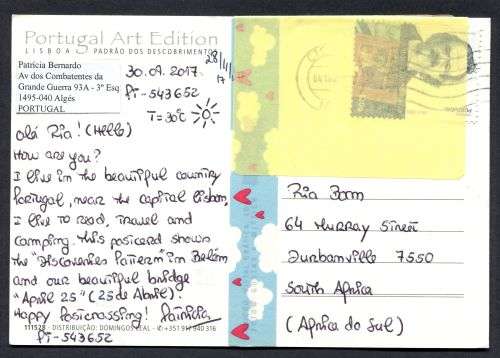 Portugal Art Edition
LISBOA PADRÃO DOS DESCOBRIMENTOS
Patrícia Bernardo
Av dos Combatentes da
Grande Guerra 93A - 3º Esq
1495-040 Algés
PORTUGAL
30.09.2017
PT-543652
T=30ºC
28/11/
17
Olá Ria! (Hello)
How are you?
I live in the beautiful country
Portugal, near the capital Lisbon.
I like to read, travel and
camping. This postcard shows
the "Discoveries Pattern" in Belém
and our beautiful bridge
"April 25" (25 de Abril).
Happy Postcrossing! Patrícia
PT-543652
111528 - DISTRIBUIÇÃO: DOMINGOS LEAL - ✆ +351 917 840 316
Ria Bam
64 Murray Street
Durbanville 7550
South Africa
(África do Sul)